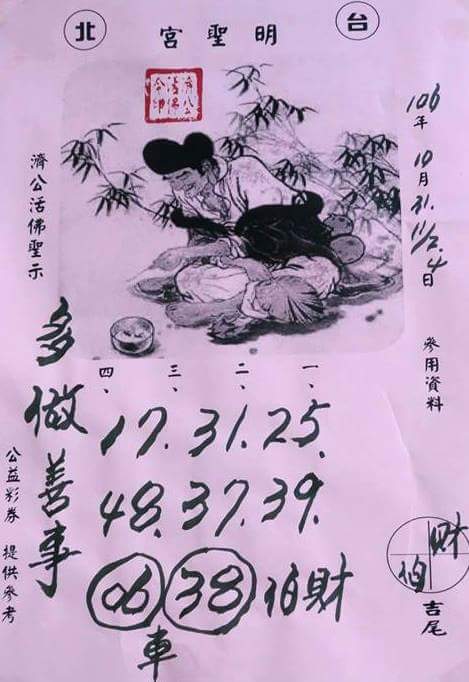 台北
明聖宮
濟公活佛令印
106年10月31.11/2.4日
參用資料
濟公活佛聖示
一、二、三、四、
17.31.25.
48.37.39.
06 38 伯財
車
多做善事
公益彩券 提供參考
財伯
吉尾